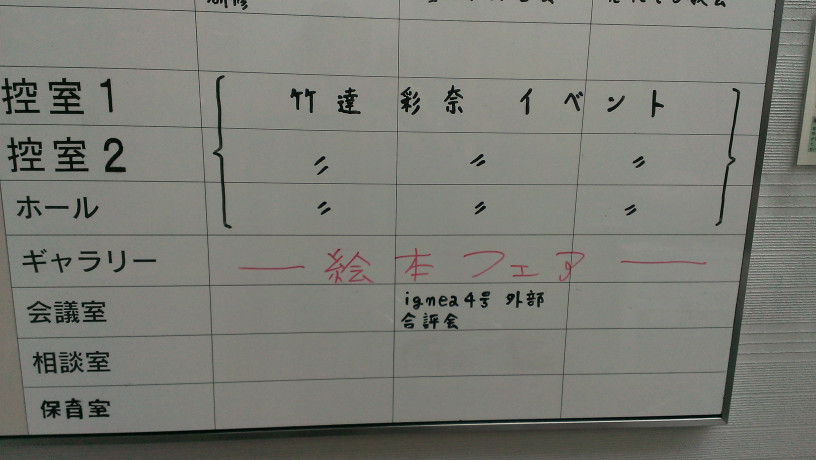 控室1 竹達 彩奈 イベント
控室2 〃 〃 〃
ホール 〃 〃 〃
ギャラリー — 絵本フェア —
会議室 ignea4号 外部
合評会
相談室
保育室